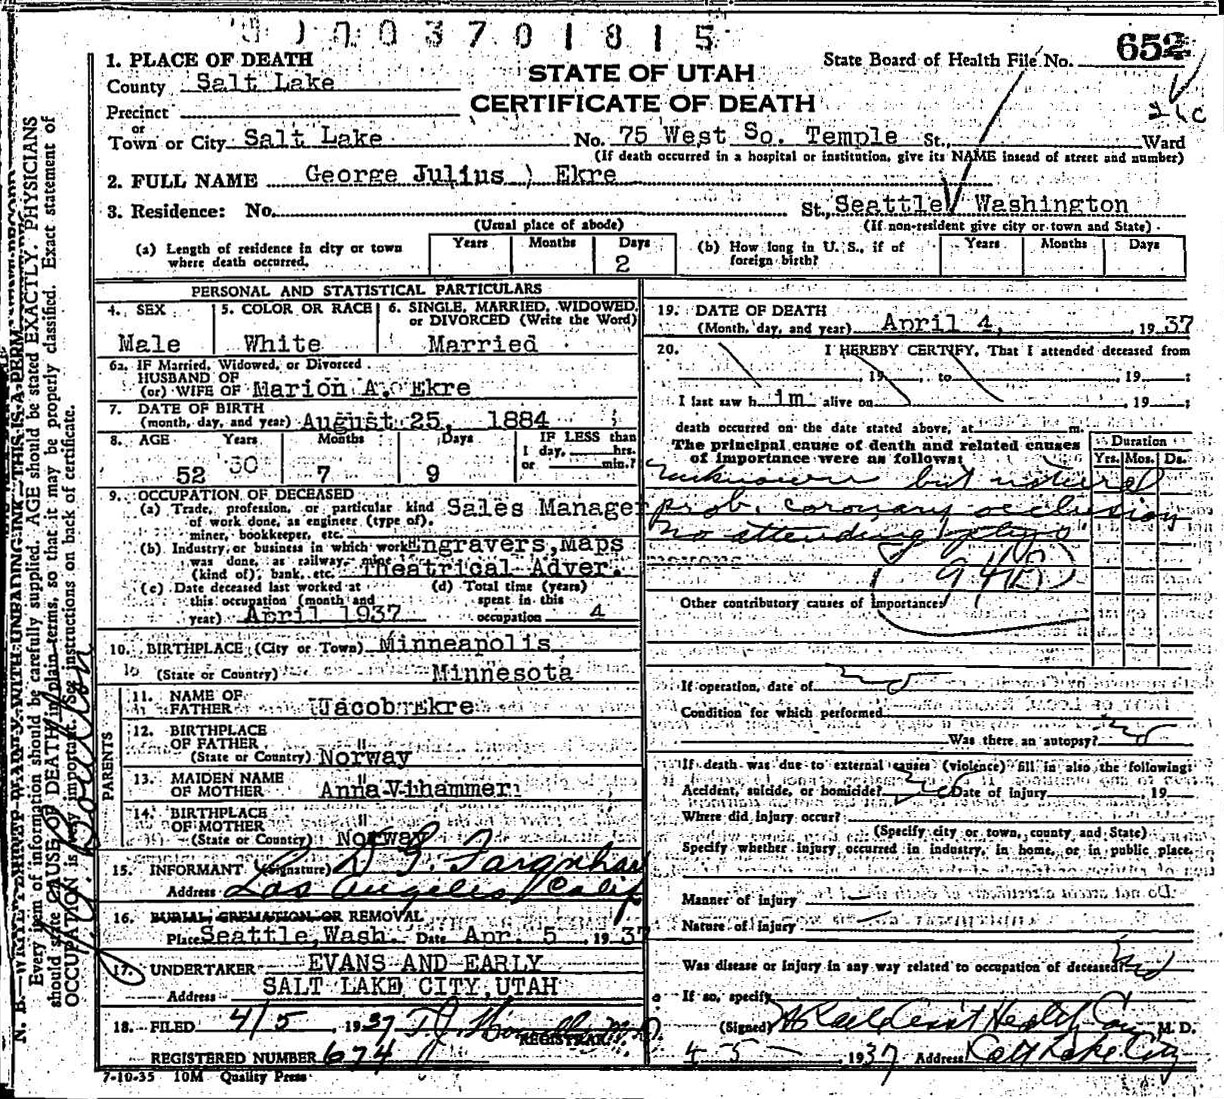 0 0 0 3 7 0 1 8 1 5
652
1. PLACE OF DEATH
State Board of Health File No.
County Salt Lake
STATE OF UTAH
CERTIFICATE OF DEATH
Precinct
or
Town or City Salt Lake No. 75 West So. Temple St., Ward
(If death occurred in a hospital or institution, give its NAME insead of street and number)
2. FULL NAME George Julius Ekre
3. Residence: No. St., Seattle Washington
(Usual place of abode) (If non-resident give city or town and State)
(a) Length of residence in city or town where death occurred. Years Months Days 2
(b) How long in U. S., if of foreign birth? Years Months Days
PERSONAL AND STATISTICAL PARTICULARS
4. SEX 5. COLOR OR RACE 6. SINGLE, MARRIED, WIDOWED, or DIVORCED (Write the Word)
Male White Married
6a. IF Married, Widowed, or Divorced
HUSBAND OF
(or) WIFE OF Marion A. Ekre
7. DATE OF BIRTH
(month, day, and year) August 25, 1884
8. AGE Years Months Days IF LESS than
1 day, hrs.
or min.?
52 7 9
9. OCCUPATION OF DECEASED
(a) Trade, profession, or particular kind of work done, as engineer (type of), miner, bookkeeper, etc. Sales Manager
(b) Industry or business in which work was done, as railway, mine (kind of), bank, etc. Engravers, Maps
Theatrical Adver.
(c) Date deceased last worked at this occupation (month and year) April 1937
(d) Total time (years) spent in this occupation 4
10. BIRTHPLACE (City or Town) Minneapolis
(State or Country) Minnesota
PARENTS
11. NAME OF FATHER Jacob Ekre
12. BIRTHPLACE OF FATHER "
(State or Country) Norway
13. MAIDEN NAME OF MOTHER Anna Vihammer
14. BIRTHPLACE OF MOTHER "
(State or Country) Norway
15. INFORMANT (Signature)
Address Los Angeles Calif
16. BURIAL, CREMATION, OR REMOVAL
Place Seattle, Wash. Date Apr. 5 1937
17. UNDERTAKER EVANS AND EARLY
Address SALT LAKE CITY, UTAH
18. FILED 4/5 1937 T. J. Howells M.D.
REGISTRAR.
REGISTERED NUMBER 674
7-10-35 10M Quality Press
19. DATE OF DEATH
(Month, day, and year) April 4, 1937
20. I HEREBY CERTIFY, That I attended deceased from
, 19 , to , 19 ;
I last saw h im alive on , 19 ;
death occurred on the date stated above, at m.
The principal cause of death and related causes of importance were as follows:
Duration
Yrs. Mos. Ds.
unknown but natural
prob. coronary occlusion
no attending phys
Other contributory causes of importance:
If operation, date of no
Condition for which performed
Was there an autopsy? no
If death was due to external causes (violence) fill in also the following:
Accident, suicide, or homicide? Date of Injury 19
Where did injury occur?
(Specify city or town, county and State)
Specify whether injury occurred in industry, in home, or in public place.
Manner of injury
Nature of injury
Was disease or injury in any way related to occupation of deceased? no
If so, specify
(Signed) M. D.
4 - 5 - , 1937 Address Salt Lake City
N. B.—WRITE PLAINLY WITH UNFADING INK—THIS IS A PERM
Every item of information should be carefully supplied. AGE should be stated EXACTLY. PHYSICIANS
should state CAUSE OF DEATH in plain terms, so that it may be properly classified. Exact statement of
OCCUPATION is very important. See instructions on back of certificate.